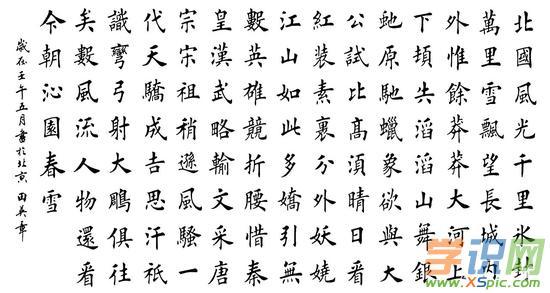 北國風光千里冰封
萬里雪飄望長城內
外惟餘莽莽大河上
下頓失滔滔山舞銀
虵原馳蠟象欲與天
公試比髙須晴日看
紅裝素裹分外妖嬈
江山如此多嬌引無
數英雄競折腰惜秦
皇漢武略輸文采唐
宗宋祖稍遜風騷一
代天驕成吉思汗祇
識彎弓射大鵰俱往
矣數風流人物還看
今朝沁園春雪
歲在壬午五月書於北京 田英章
学识网
www.XSpic.com